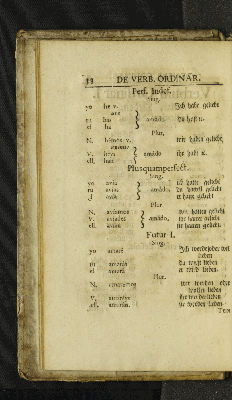 DE VERB. ORDINAR.
Perf. Indef.
Sing.
yo he v. Ich habe geliebt
tu has amádo. du hast
el ha
Plur.
N. hémos v. wir haben geliebt
V. amádo ihr habt
ell. han
Plusquamperfect.
Sing.
yo avía ich hatte geliebt
tu avías amádo. du hattest geliebt
el avía er hatte geliebt
Plur.
N. avíamos wir hatten geliebt
V. avíades amádo, ihr hattet geliebt
ell. avían sie hatten geliebt
Futur I.
Sing.
yo amaré Ich werde oder wil
lieben
tu amarás du wirst lieben
el amará er wird lieben.
Plur.
N. amarémos wir werden oder
wollen lieben
V. ihr werdet lieben
ell. amarán. sie werden lieben